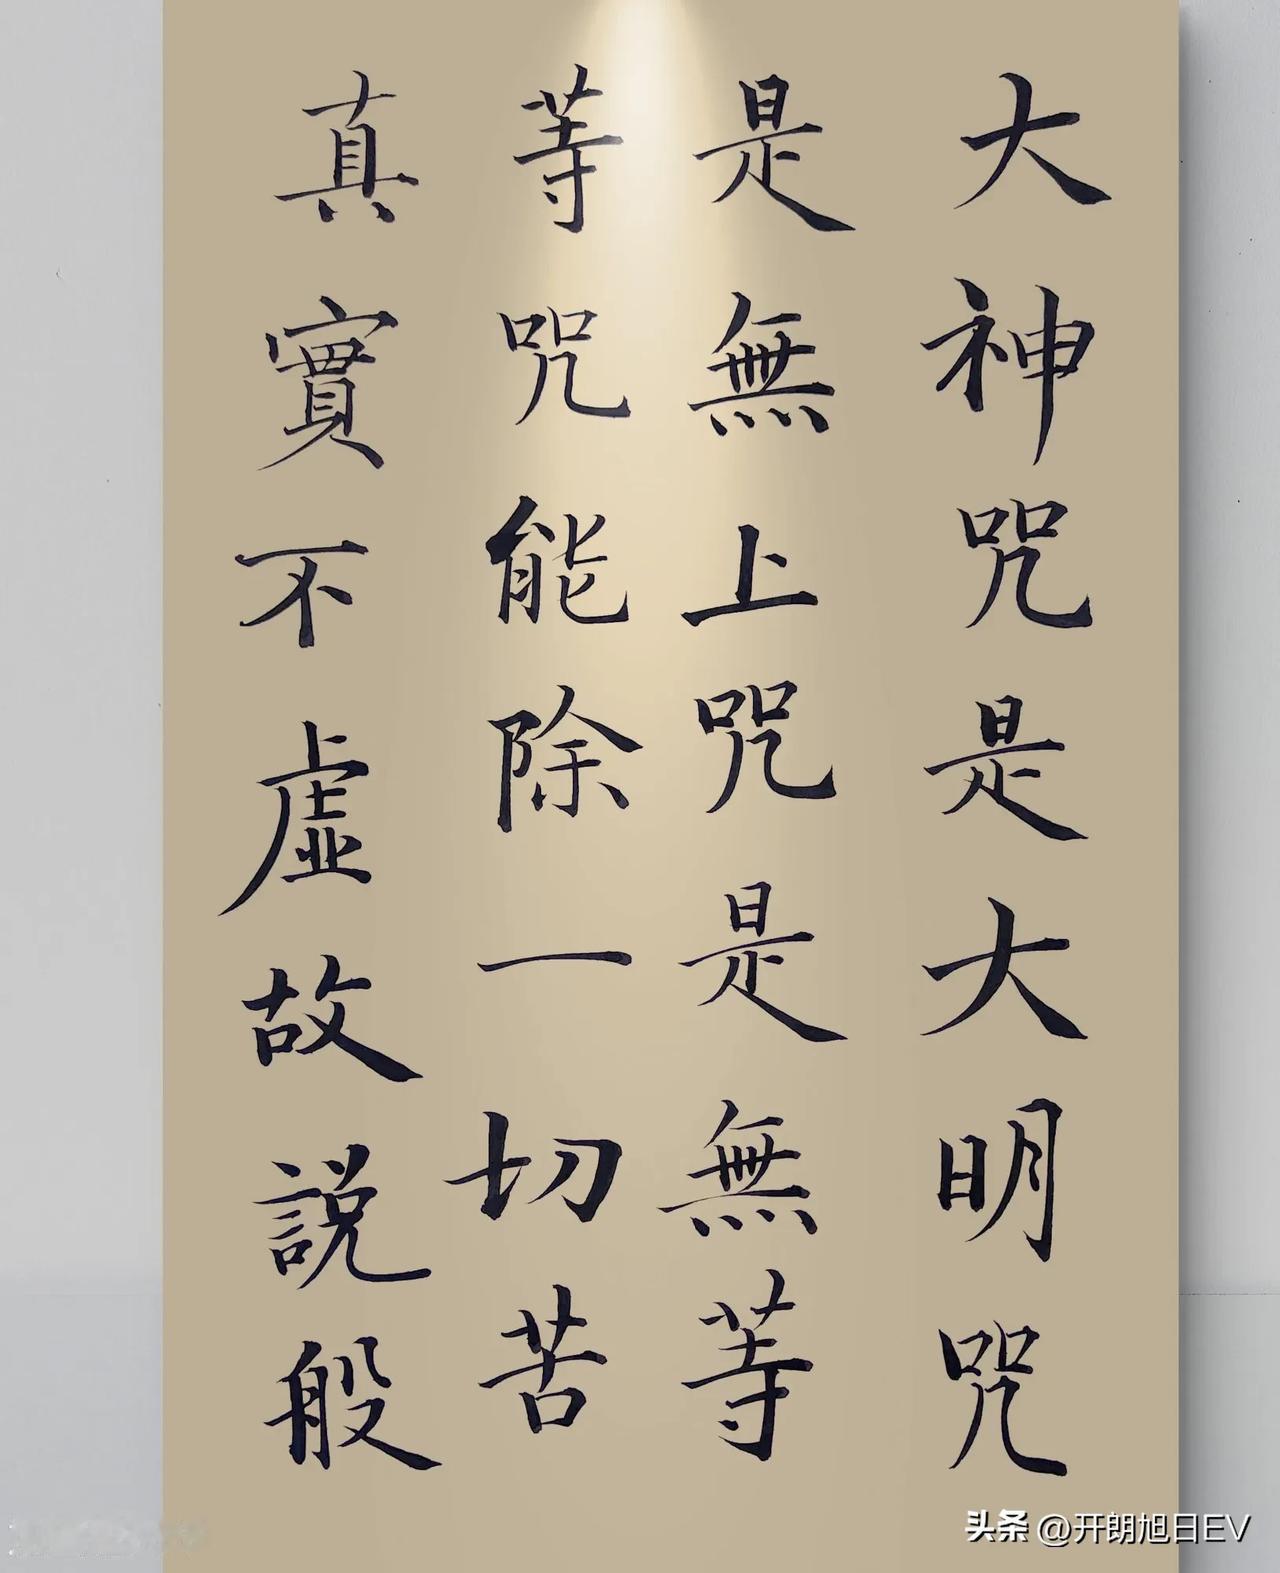 大神咒是大明咒
是無上咒是無等
等咒能除一切苦
真實不虛故說般
头条 @开朗旭日EV